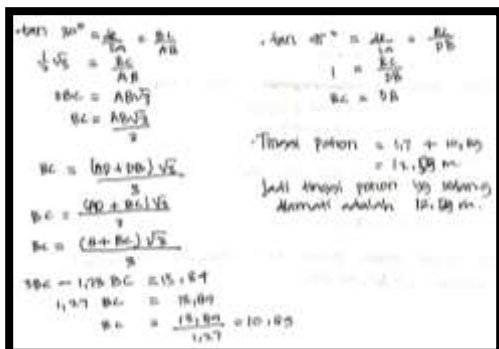 tan 30° = de/sa = BC/AB
1/3 √3 = BC/AB
3BC = AB√3
BC = AB√3 / 3
BC = (AD + DB) √3 / 3
BC = (AD + BC) √3 / 3
BC = (8 + BC) √3 / 3
3BC - 1,73 BC = 13,84
1,27 BC = 13,84
BC = 13,84 / 1,27 = 10,89
tan 45° = de/sa = BC/DB
1 = BC/DB
BC = DB
Tinggi pohon = 1,7 + 10,89
= 12,59 m
Jadi tinggi pohon yg sedang
diamati adalah 12,59 m.